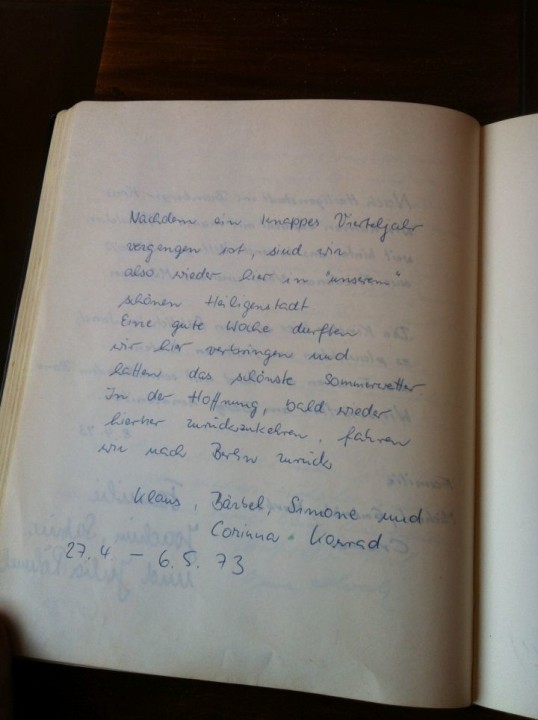 Nachdem ein knappes Vierteljahr
vergangen ist, sind wir
also wieder hier in "unserem"
schönen Heiligenstadt
Eine gute Woche durften
wir hier verbringen und
hatten das schönste Sommerwetter
In der Hoffnung, bald wieder
hierher zurückzukehren, fahren
wir nach Berlin zurück
Klaus, Bärbel, Simone und
Corinna Konrad
27.4. – 6.5. 73